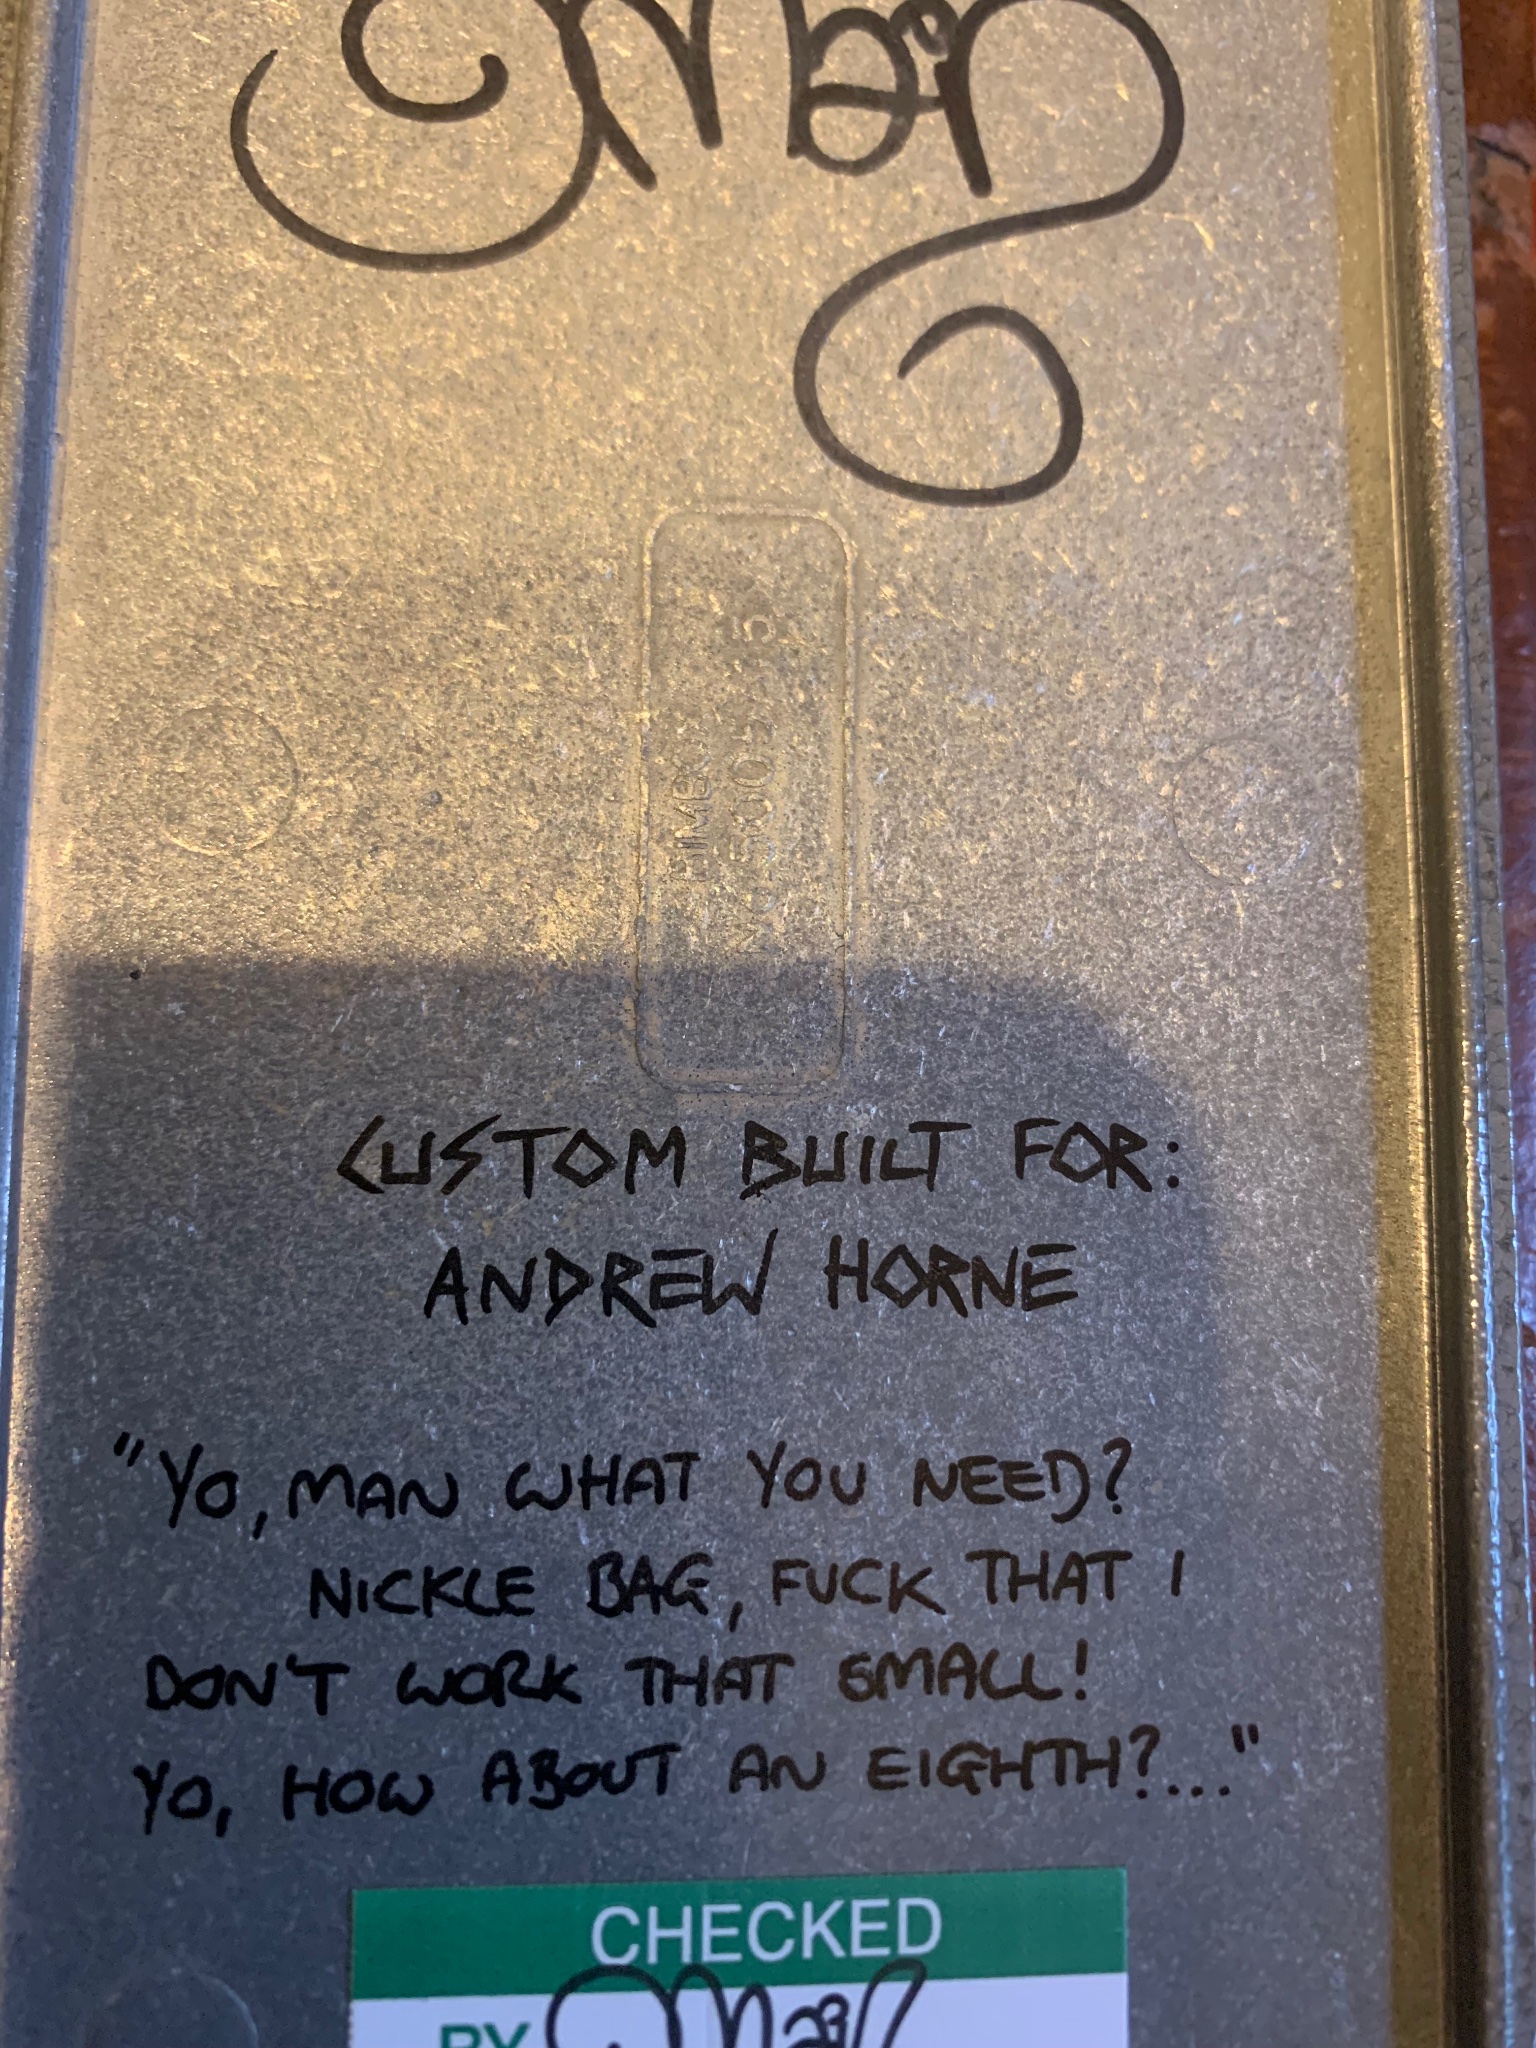 CUSTOM BUILT FOR:
ANDREW HORNE
"YO, MAN WHAT YOU NEED?
NICKLE BAG, FUCK THAT I
DON'T WORK THAT SMALL!
YO, HOW ABOUT AN EIGHTH?..."
CHECKED
BY